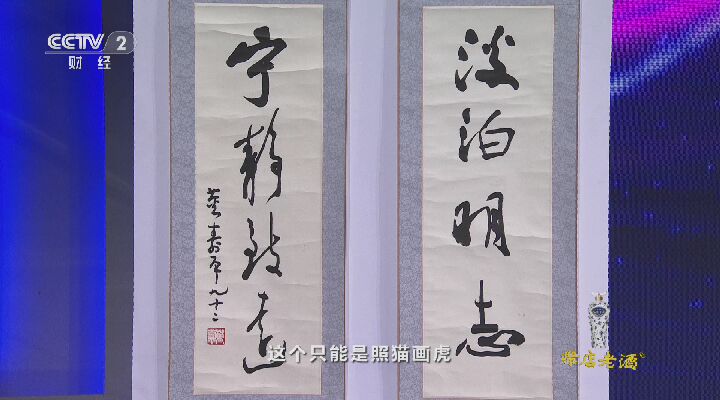 CCTV 2
财经
淡泊明志
宁静致远
董寿平九十二
这个只能是照猫画虎
赊店老酒